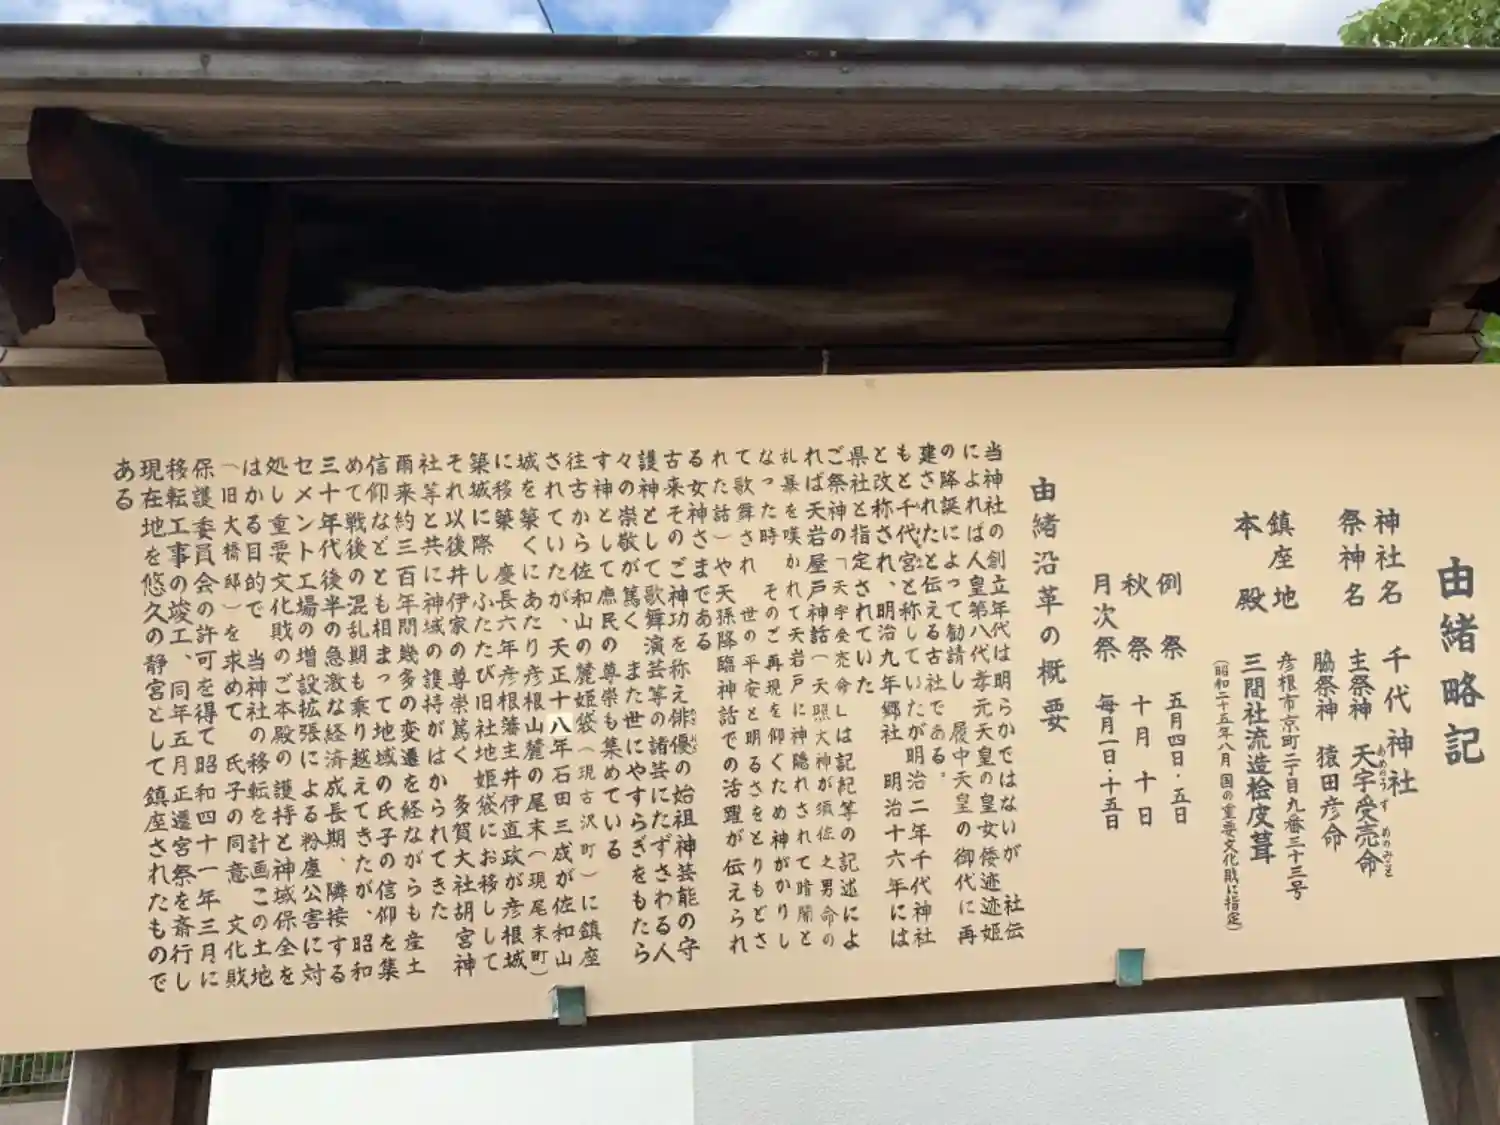 由緒略記
神社名 千代神社
祭神名 主祭神 天宇受売命
あめのうずめのみこと
脇祭神 猿田彦命
鎮座地 彦根市京町二丁目九番三十三号
本殿 三間社流造桧皮葺
(昭和二十五年八月 国の重要文化財に指定)
例祭 五月四日・五日
秋祭 十月十日
月次祭 毎月一日・十五日
由緒沿革の概要
当神社の創立年代は明らかではないが 社伝
によれば人皇第八代孝元天皇の皇女倭迹迹姫
の降誕によって勧請し 履中天皇の御代に再
建されたと伝える古社である。
もと千代宮と称していたが明治二年千代神社
と改称され、明治九年郷社 明治十六年には
県社と指定されていた
ご祭神の「天宇受売命」は記紀等の記述によ
れば天岩屋戸神話(天照大神が須佐之男命の
乱暴を嘆かれて天岩戸に神隠れされて暗闇と
なった時 そのご再現を仰ぐため神がかりし
て歌舞され 世の平安と明るさをとりもどさ
れた話)や天孫降臨神話での活躍が伝えられ
る女神さまである
古来そのご神功を称え俳優の始祖神芸能の守
わざおぎ
護神として歌舞演芸等の諸芸にたずさわる人
々の崇敬が篤く また世にやすらぎをもたら
す神として庶民の尊崇も集めている
往古から佐和山の麓姫袋(現古沢町)に鎮座
されていたが、天正十八年石田三成が佐和山
城を築くにあたり彦根山麓の尾末(現尾末町)
に移築 慶長六年彦根藩主井伊直政が彦根城
築城に際しふたたび旧社地姫袋にお移しして
それ以後井伊家の尊崇篤く 多賀大社胡宮神
社等と共に神域の護持がはかられてきた
爾来約三百年間幾多の変遷を経ながらも産土
信仰などとも相まって地域の氏子の信仰を集
めて戦後の混乱期も乗り越えてきたが、昭和
三十年代後半の急激な経済成長期、隣接する
セメント工場の増設拡張による粉塵公害に対
処し重要文化財のご本殿の護持と神域保全を
はかる目的で 当神社の移転を計画この土地
(旧大橋邸)を求めて 氏子の同意 文化財
保護委員会の許可を得て昭和四十一年三月に
移転工事の竣工、同年五月正遷宮祭を斎行し
現在地を悠久の静宮として鎮座されたもので
ある